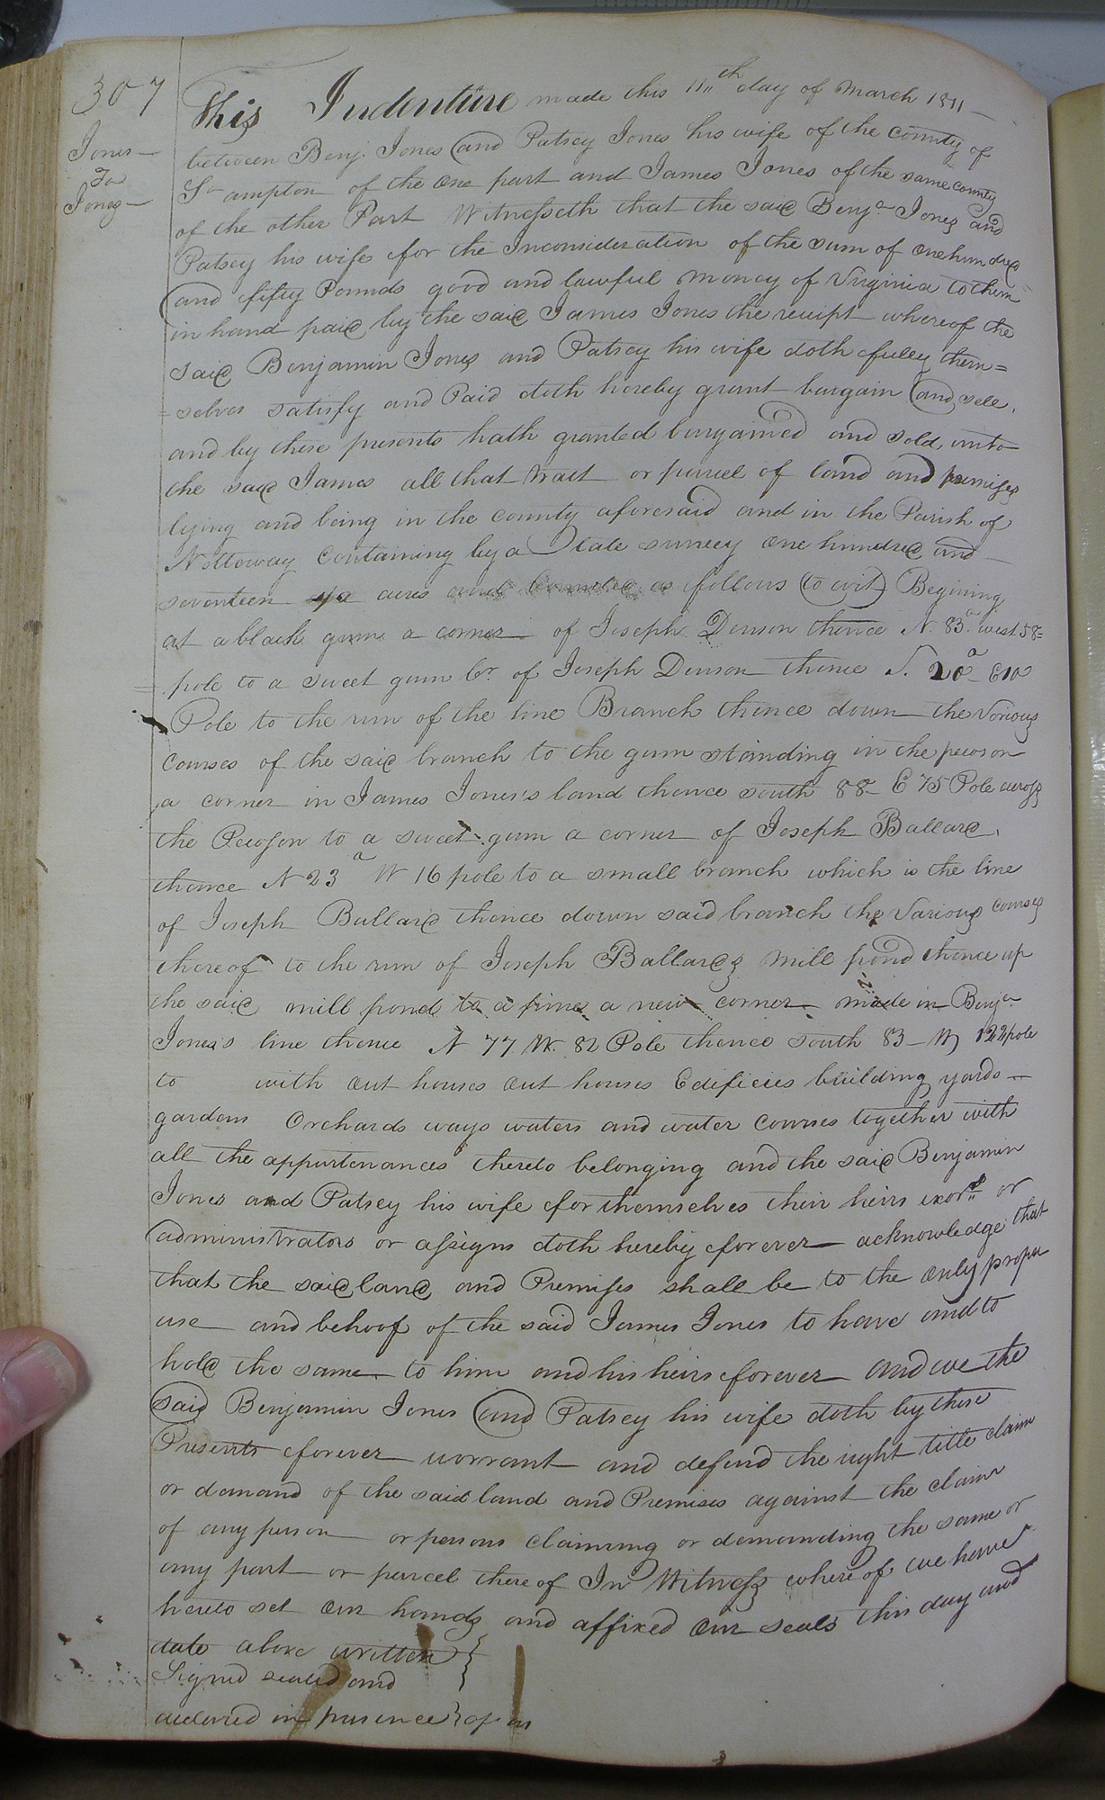 307
Jones
To
Jones
This Indenture made this 11th day of March 1811
between Benj. Jones and Patsey Jones his wife of the county of
So ampton of the one part and James Jones of the same county
of the other Part Witnesseth that the said Benja Jones and
Patsey his wife for the Inconsideration of the sum of one hundred
and fifty Pounds good and lawful money of Virginia to them
in hand paid by the said James Jones the receipt whereof the
said Benjamin Jones and Patsey his wife doth fully them=
=selves satisfy and Paid doth hereby grant bargain and sell
and by these presents hath granted bargained and sold unto
the said James all that tract or parcel of land and premises
lying and being in the county aforesaid and in the Parish of
Nottoway Containing by a State survey One hundred and
seventeen acres and bounded as follows (to wit) Begining
at a black gum a corner of Joseph Denson thence N. 83° west 58=
pole to a sweet gum Cr. of Joseph Denson thence S. 20° E 10
Pole to the run of the line Branch thence down the Various
courses of the said branch to the gum standing in the pecoson
a corner in James Jones's land thence south 88 E 75 Pole across
the Pecoson to a sweet gum a corner of Joseph Ballard
thence N 23° W 16 pole to a small branch which is the line
of Joseph Ballard thence down said branch the Various courses
thereof to the run of Joseph Ballards mill pond thence up
the said mill pond to a pine a new corner made in Benja
Jones's line thence N 77 W. 82 Pole thence south 83 W 122 pole
to with out houses out houses Edificies building yards
gardens Orchards ways waters and water Courses together with
all the appurtenances thereto belonging and the said Benjamin
Jones and Patsey his wife for themselves their heirs exors or
administrators or assigns doth hereby forever acknowledge that
that the said land and Premises shall be to the only proper
use and behoof of the said James Jones to have and to
hold the same to him and his heirs forever and we the
said Benjamin Jones and Patsey his wife doth by these
Presents forever warrant and defend the right title claim
or demand of the said land and Premises against the claim
of any person or persons claiming or demanding the same or
any part or parcel there of In Witness where of we have
hereto set our hands and affixed our seals this day and
date above written
Signed sealed and
delivered in presence of us